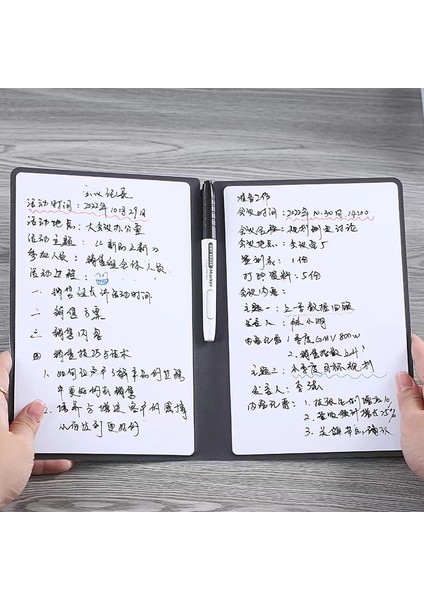 会议记录
活动时间：2022年10月29日
活动地点：大会议办公室
活动主题：《新的上新》
参加人数：销售组全体人员
活动过程：
一 销售组点评活动时间
二 销售方案
三 销售内容
四 销售技巧与话术
1、如何让客户了解产品
更好的去销售
2、培养与增进客户的
从而达到更好的
准备工作
会议时间：2022年10.30日 14:00
会议名称：规划例会讨论
会议地点：会议室5
签到表：1份
打印资料：5份
会议内容：
主题一：上季数据回顾
发言人：林小明
内容纪要：1.季度GMV 800W
2.销售指数上升
主题2：本季度目标规划
发言人：李
内容纪要：1.
2.营收预计增长25%
3.
Marker